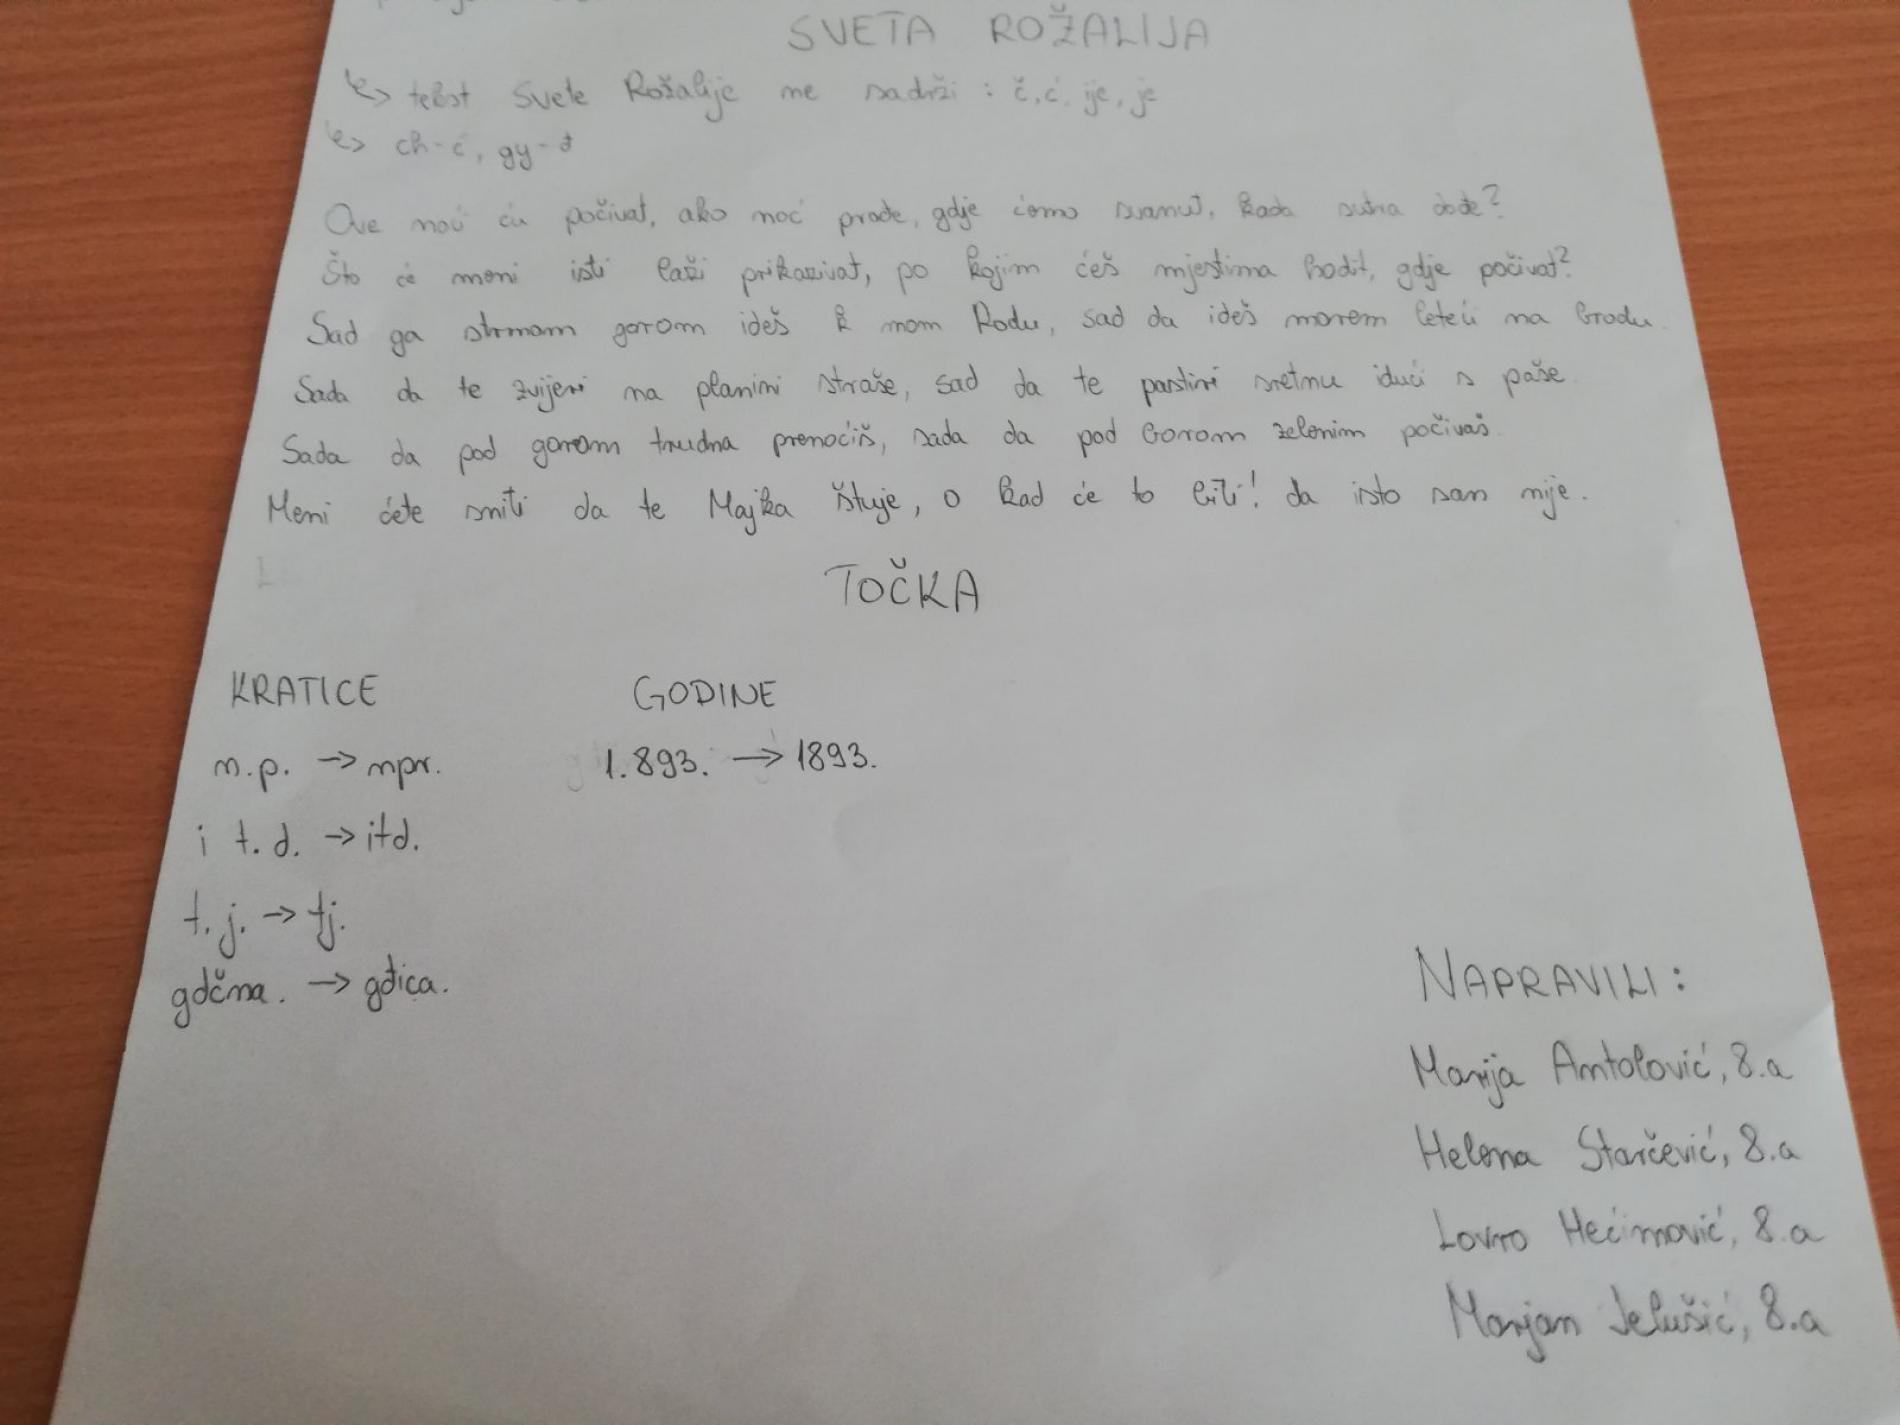 SVETA ROŽALIJA
↳ tekst Svete Rožalije ne sadrži : č, ć, ije, je
↳ ch-ć, gy-đ
Ove noći ću počivat, ako noć prođe, gdje ćemo svanut, kada sutra dođe?
Što će meni isti laži prikazivat, po kojim ćeš mjestima hodit, gdje počivat?
Sad ga strmom gorom ideš k mom Rodu, sad da ideš morem leteći na brodu.
Sada da te zvijeri na planini straše, sad da te pastiri sretnu idući s paše.
Sada da pod gorom trudna prenoćiš, sada da pod borom zelenim počivaš.
Meni ćete sniti da te Majka štuje, o kad će to biti! da isto san nije.
TOČKA
KRATICE GODINE
n.p. → npr. 1.893. → 1893.
i t.d. → itd.
t.j. → tj.
gdčna. → gđica.
NAPRAVILI:
Marija Antolović, 8.a
Helena Starčević, 8.a
Lovro Hećimović, 8.a
Marjan Jelušić, 8.a